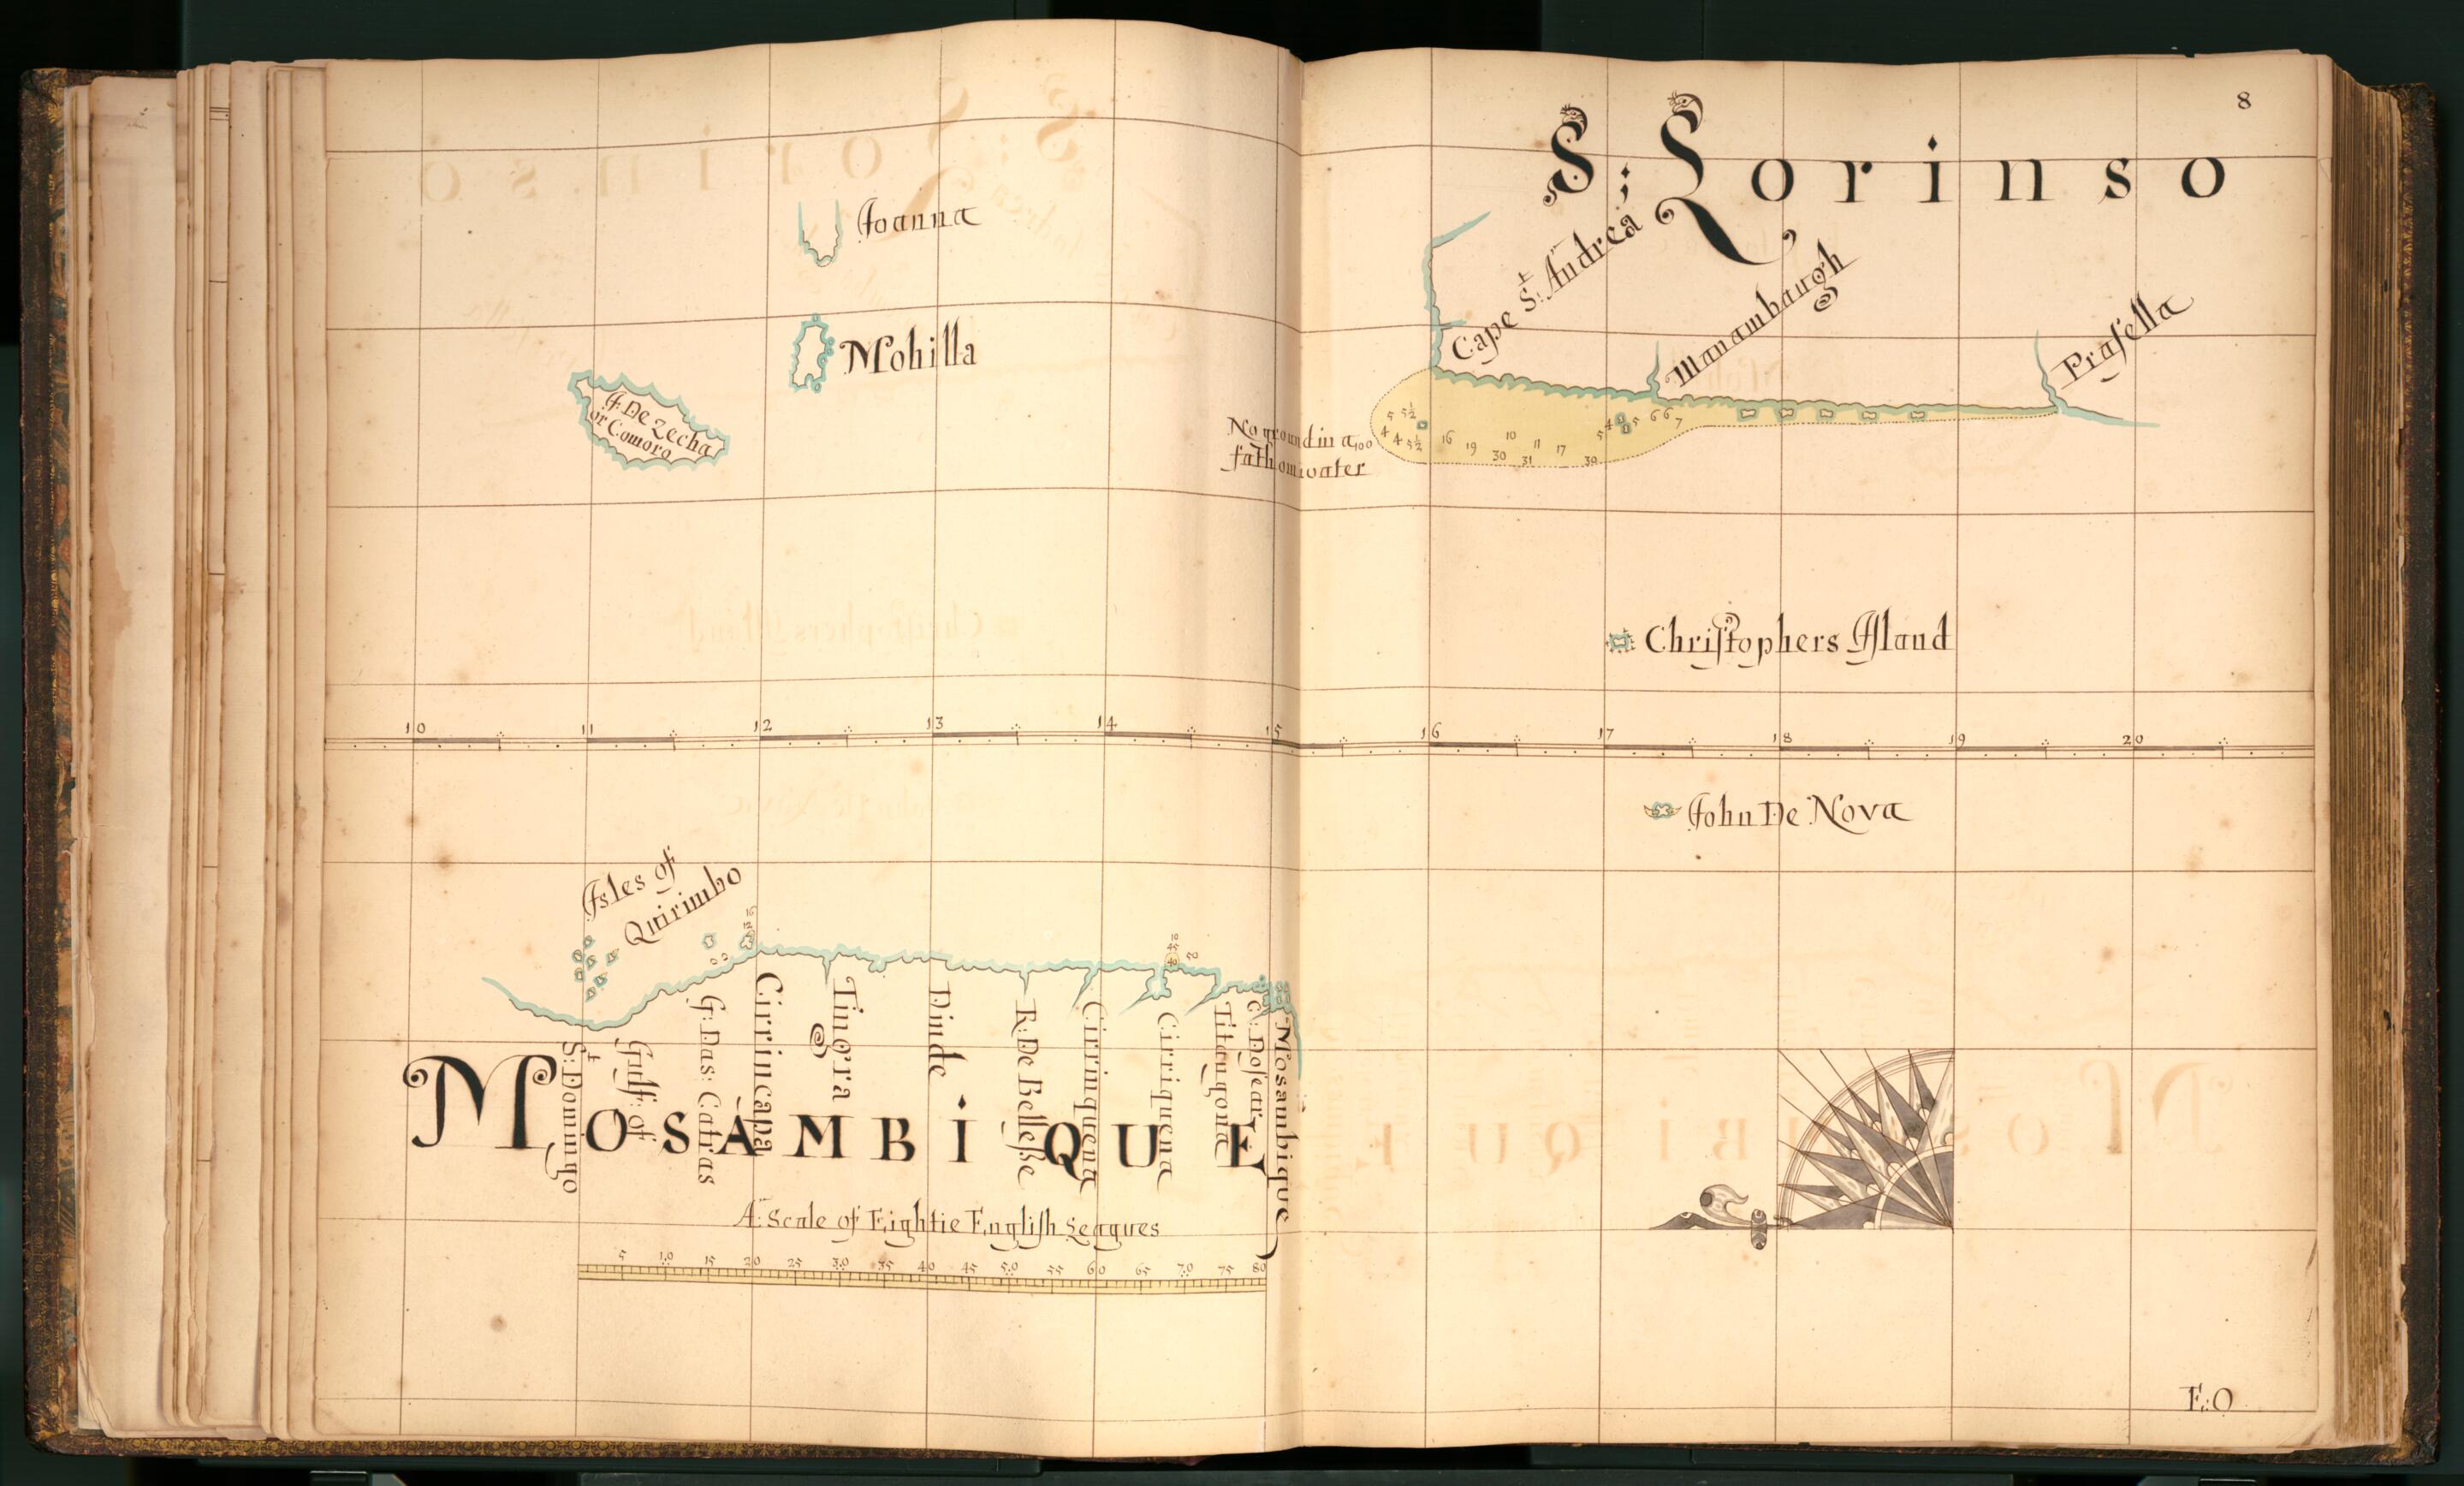 8
S: Lorinso
Joanna
Mohilla
J De Zecha
or Comoro
Cape St: Andrea
Manambaurgh
Prasella
No ground in a 100
fathom water
5 5½
4 4 5½
16 19 10 11 17
30 31 30
5 4 5 6 6 7
Christophers Island
10 11 12 13 14 15 16 17 18 19 20
John De Nova
Isles of
Quirimbo
16
12
10
45
40
50
St: Domingo
Gulf: of
G: Das: Catras
Cirrincapa
Tingra
Dinde
R: De Bellesse
Cirrinquena
Cirriquena
Titangona
C: Dosear
Mosambique
MOSAMBIQUE
A: Scale of Eightie English Leagues
5 10 15 20 25 30 35 40 45 50 55 60 65 70 75 80
E:O